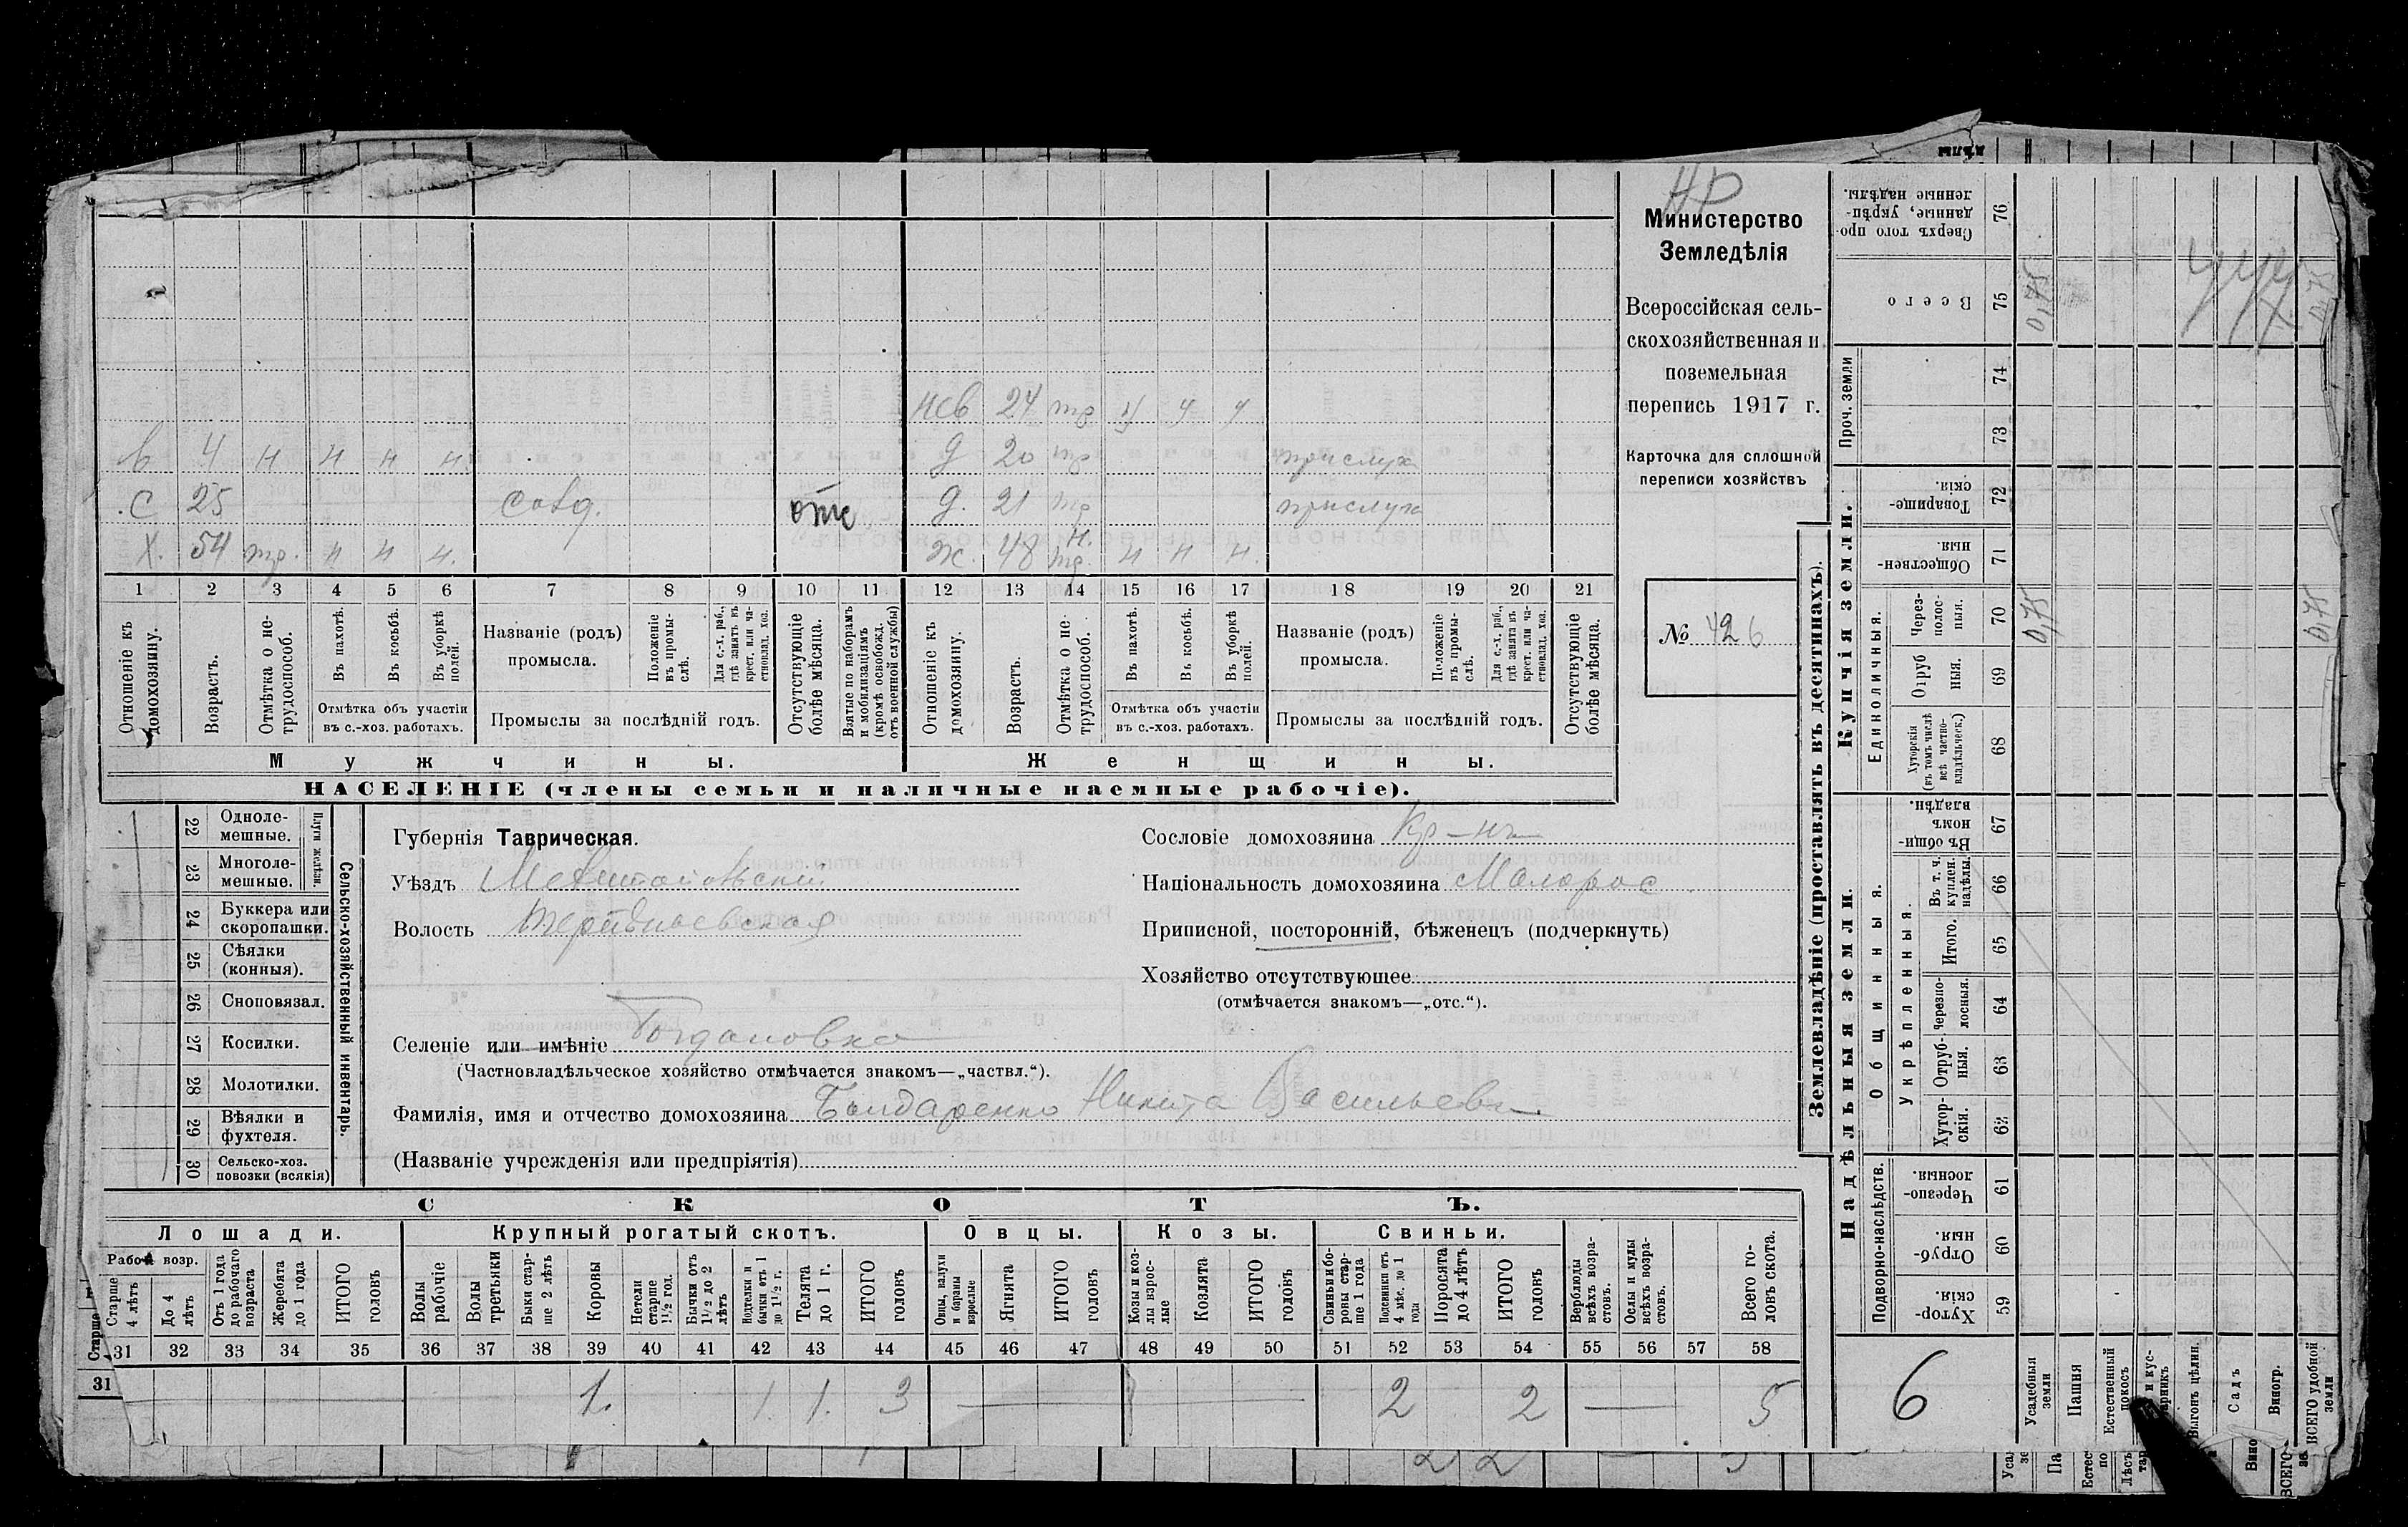 НР
Министерство
Земледѣлія
Всероссійская сель-
скохозяйственная и
поземельная
перепись 1917 г.
Карточка для сплошной
переписи хозяйствъ
№ 426
нев 24 тр ч ч ч
в 4 н н н н д 20 тр прислуга
с 25 солд. отс д. 21 тр прислуга
х. 54 тр. н н н. ж. 48 н. тр. н н н.
1 2 3 4 5 6 7 8 9 10 11 12 13 14 15 16 17 18 19 20 21
Отношеніе къ домохозяину.
Возрастъ.
Отмѣтка о не-трудоспособ.
Въ пахотѣ.
Въ косьбѣ.
Въ уборкѣ полей.
Отмѣтка объ участіи
въ с.-хоз. работахъ.
Названіе (родъ)
промысла.
Положеніе въ промы-слѣ.
Для с.-х. раб., гдѣ занятъ въ крест. или ча-стновлад. хоз.
Промыслы за послѣдній годъ.
Отсутствующіе болѣе мѣсяца.
Взятые по наборамъ и мобилизаціямъ (кромѣ освобожд. отъ военной службы)
Отношеніе къ домохозяину.
Возрастъ.
Отмѣтка о не-трудоспособ.
Въ пахотѣ.
Въ косьбѣ.
Въ уборкѣ полей.
Отмѣтка объ участіи
въ с.-хоз. работахъ.
Названіе (родъ)
промысла.
Положеніе въ промы-слѣ.
Для с.-х. раб., гдѣ занята въ крест. или ча-стновлад. хоз.
Промыслы за послѣдній годъ.
Отсутствующіе болѣе мѣсяца.
Мужчины. Женщины.
НАСЕЛЕНІЕ (члены семьи и наличные наемные рабочіе).
22 Одноле-мешные.
23 Многоле-мешные.
Плуги желѣзн.
24 Буккера или скоропашки.
25 Сѣялки (конныя).
26 Сноповязал.
27 Косилки.
28 Молотилки.
29 Вѣялки и фухтеля.
30 Сельско-хоз. повозки (всякія)
Сельско-хозяйственный инвентарь.
Губернія Таврическая.
Уѣздъ Мелитопольскій
Волость
Селеніе или имѣніе Богдановка
(Частновладѣльческое хозяйство отмѣчается знакомъ—„частвл.“).
Фамилія, имя и отчество домохозяина Бондаренко Никита Васильев.
(Названіе учрежденія или предпріятія)
Сословіе домохозяина Кр-нъ
Національность домохозяина Малорос
Приписной, посторонній, бѣженецъ (подчеркнуть)
Хозяйство отсутствующее
(отмѣчается знакомъ—„отс.“).
СКОТЪ.
Лошади. Крупный рогатый скотъ. Овцы. Козы. Свиньи.
Рабоч. возр.
Старше 4 лѣтъ
До 4 лѣтъ
Отъ 1 года до рабочаго возраста
Жеребята до 1 года
ИТОГО головъ
Волы рабочіе
Волы третьяки
Быки стар-ше 2 лѣтъ
Коровы
Нетели старше 1½ год.
Бычки отъ 1½ до 2 лѣтъ
Подтелки и бычки отъ 1 до 1½ г.
Телята до 1 г.
ИТОГО головъ
Овцы, валухи и бараны взрослые
Ягнята
ИТОГО головъ
Козы и коз-лы взрос-лые
Козлята
ИТОГО головъ
Свиньи и бо-ровы стар-ше 1 года
Подсвинки отъ 4 мѣс. до 1 года
Поросята до 4 лѣтъ
ИТОГО головъ
Верблюды всѣхъ возра-стовъ.
Ослы и мулы всѣхъ возра-стовъ.
Всего го-ловъ скота.
31 32 33 34 35 36 37 38 39 40 41 42 43 44 45 46 47 48 49 50 51 52 53 54 55 56 57 58
1. 1. 1. 3 2 2 5
Старше
31
Землевладѣніе (проставлять въ десятинахъ).
Купчія земли.
Надѣльныя земли.
Проч. земли
Единоличныя.
Общинныя.
Укрѣпленныя.
Подворно-наслѣдств.
Сверхъ того про-данные, укрѣп-ленные надѣлы. 76
Всего 75 0,75
74
73
Товарище-скія. 72
Обществен-ныя. 71
Через-полос-ныя. 70 0,75 0,75
Отруб-ныя. 69
Хуторскія (въ томъ числѣ всѣ частно-владѣльческ.) 68
Въ общи-номъ владѣн. 67
Въ т. ч. куплен. надѣлы. 66
Итого. 65
Черезпо-лосныя. 64
Отруб-ныя. 63
Хутор-скія. 62
Черезпо-лосныя 61
Отруб-ныя. 60
Хутор-скія. 59
6
Усадебныя земли
Пашня
Естественный покосъ
Выгонъ цѣлин.
Садъ
Виногр.
ВСЕГО удобной земли
2 2